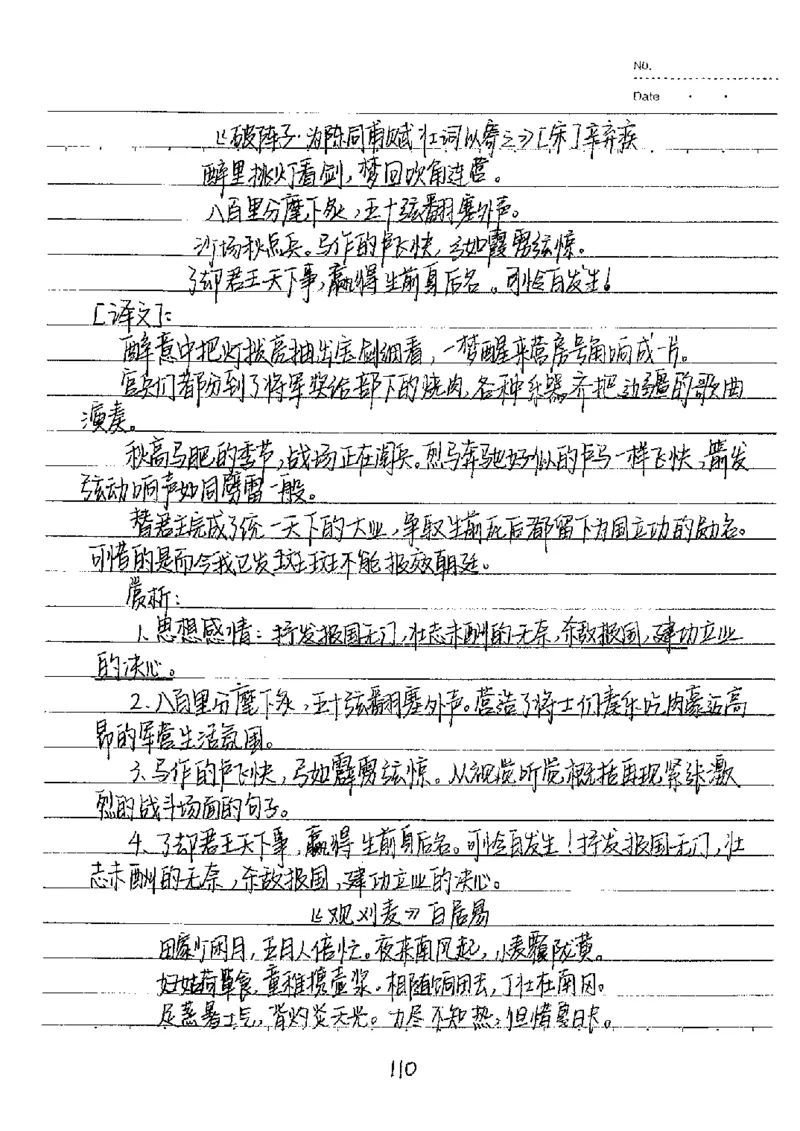 No.
Date
《破阵子·为陈同甫赋壮词以寄之》[宋]辛弃疾
醉里挑灯看剑，梦回吹角连营。
八百里分麾下炙，五十弦翻塞外声。
沙场秋点兵。马作的卢飞快，弓如霹雳弦惊。
了却君王天下事，赢得生前身后名。可怜白发生！
[译文]：
醉意中把灯拨亮抽出宝剑细看，一梦醒来营房号角响成一片。
官兵们都分到了将军奖给部下的烧肉，各种乐器齐把边疆的歌曲
演奏。
秋高马肥的季节，战场正在阅兵。烈马奔驰好似的卢马一样飞快，箭发
弦动响声如同霹雷一般。
替君王完成了统一天下的大业，争取生前死后都留下为国立功的勋名。
可惜的是而今我已发斑斑不能报效朝廷。
赏析：
1.思想感情：抒发报国无门，壮志未酬的无奈，杀敌报国，建功立业
的决心。
2.八百里分麾下炙，五十弦翻塞外声。营造了将士们奏乐吃肉豪迈高
昂的军营生活氛围。
3.马作的卢飞快，弓如霹雳弦惊。从视觉听觉概括再现紧张激
烈的战斗场面的句子。
4.了却君王天下事，赢得生前身后名。可怜白发生！抒发报国无门，壮
志未酬的无奈，杀敌报国，建功立业的决心。
《观刈麦》白居易
田家少闲月，五月人倍忙。夜来南风起，小麦覆陇黄。
妇姑荷箪食，童稚携壶浆。相随饷田去，丁壮在南冈。
足蒸暑土气，背灼炎天光。力尽不知热，但惜夏日长。
110